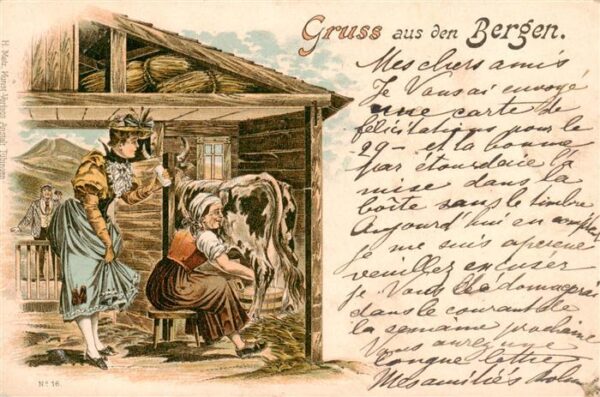 Gruss aus den Bergen.
Mes chers amis
Je Vous ai envoyé
une carte de
félicitations pour le
29 - et la bonne
par étourderie l'a
mise dans la
boîte sans le timbre
Aujourd'hui en
je me suis aperçue
veuillez excuser
je Vous
dans le courant de
la semaine prochaine
Vous aurez une
longue lettre
Mes amitiés
Nº 16.